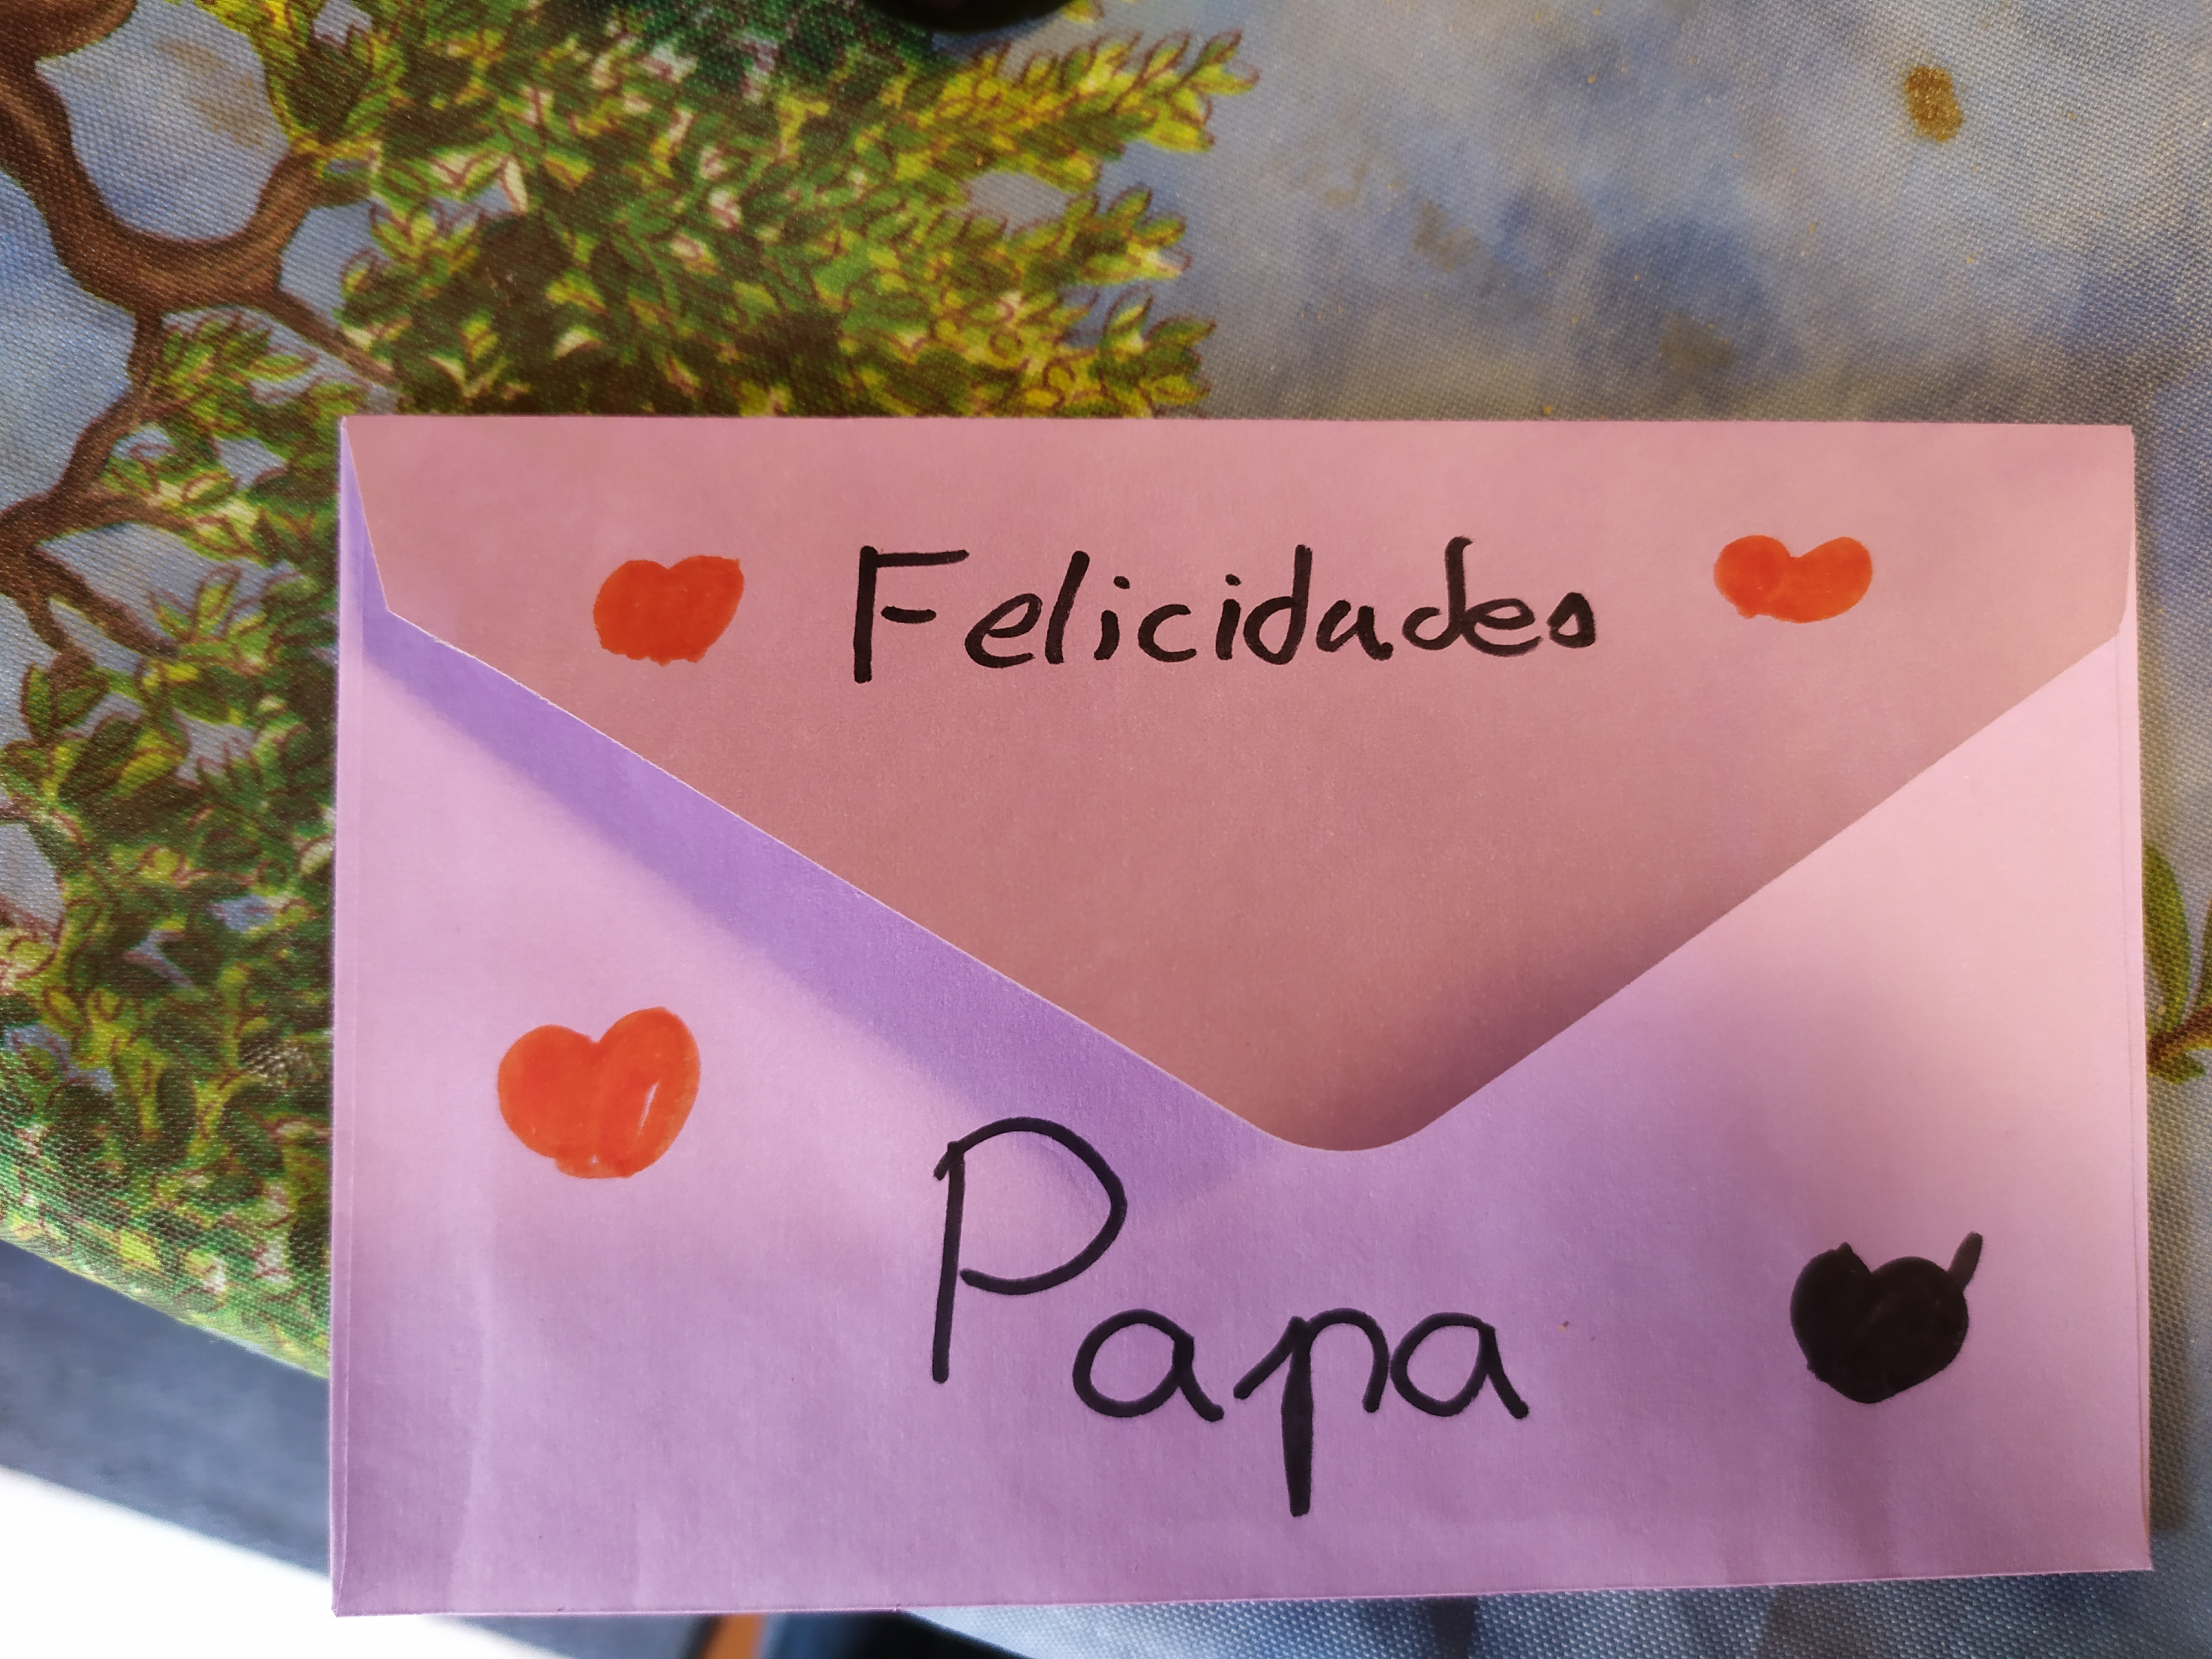 Felicidades
Papa